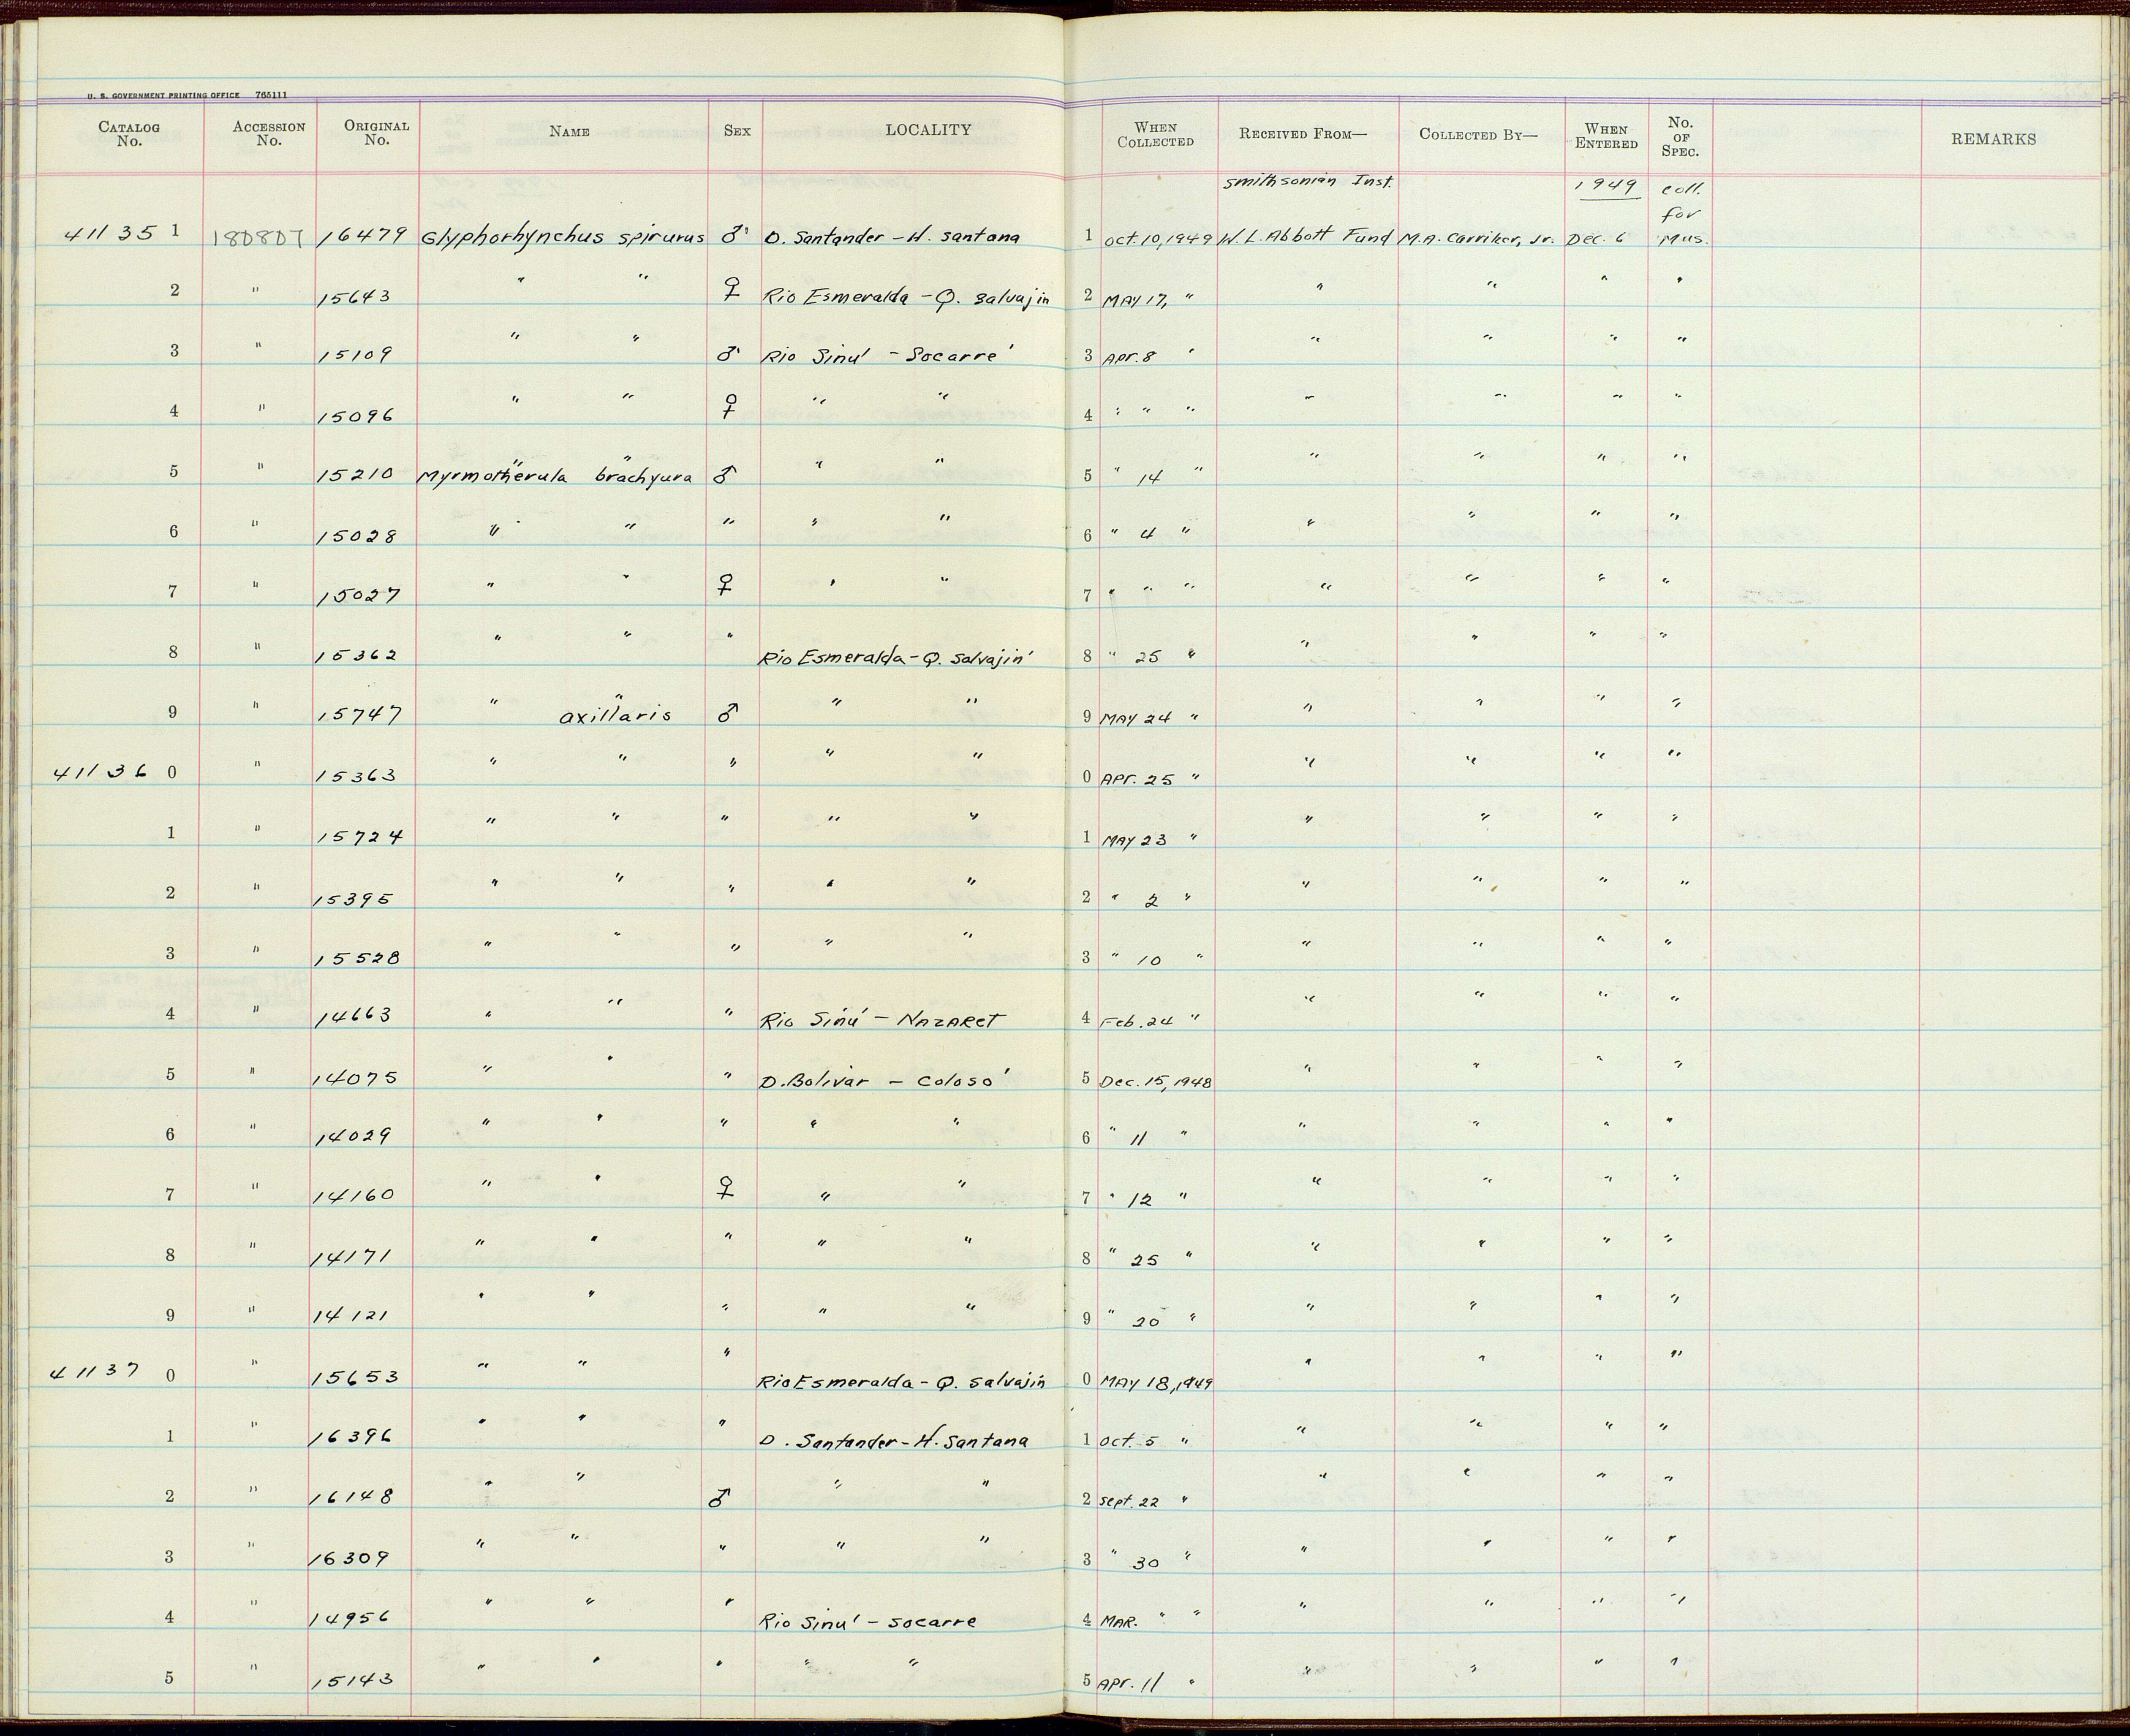 U. S. GOVERNMENT PRINTING OFFICE 765111
CATALOG No. ACCESSION No. ORIGINAL No. NAME SEX LOCALITY WHEN COLLECTED RECEIVED FROM— COLLECTED BY— WHEN ENTERED No. OF SPEC. REMARKS
Smithsonian Inst. 1949 coll. for
41135 1 180807 16479 Glyphorhynchus spirurus ♂ D. Santander - H. Santana 1 Oct. 10, 1949 W. L. Abbott Fund M.A. Carriker, Jr. Dec. 6 Mus.
2 " 15643 " " ♀ Rio Esmeralda - Q. Salvajin 2 MAY 17, " " " " "
3 " 15109 " " ♂ Rio Sinú - Socarré 3 Apr. 8 " " " " "
4 " 15096 " " ♀ " " 4 " " " " " " "
5 " 15210 Myrmotherula brachyura ♂ " " 5 " 14 " " " " "
6 " 15028 " " " " " 6 " 4 " " " " "
7 " 15027 " " ♀ " " 7 " " " " " " "
8 " 15362 " " " Rio Esmeralda - Q. Salvajin' 8 " 25 " " " " "
9 " 15747 " axillaris ♂ " " 9 MAY 24 " " " " "
41136 0 " 15363 " " " " " 0 APr. 25 " " " " "
1 " 15724 " " " " " 1 MAY 23 " " " " "
2 " 15395 " " " " " 2 " 2 " " " " "
3 " 15528 " " " " " 3 " 10 " " " " "
4 " 14663 " " " Rio Sinú - NAZARET 4 Feb. 24 " " " " "
5 " 14075 " " " D. Bolivar - Colosó 5 Dec. 15, 1948 " " " "
6 " 14029 " " " " " 6 " 11 " " " " "
7 " 14160 " " ♀ " " 7 " 12 " " " " "
8 " 14171 " " " " " 8 " 25 " " " " "
9 " 14121 " " " " " 9 " 20 " " " " "
41137 0 " 15653 " " " Rio Esmeralda - Q. Salvajin 0 MAY 18, 1949 " " " "
1 " 16396 " " " D. Santander - H. Santana 1 Oct. 5 " " " " "
2 " 16148 " " ♂ " " 2 Sept. 22 " " " " "
3 " 16309 " " " " " 3 " 30 " " " " "
4 " 14956 " " " Rio Sinú - Socarre 4 MAR. " " " " " "
5 " 15143 " " " " " 5 Apr. 11 " " " " "